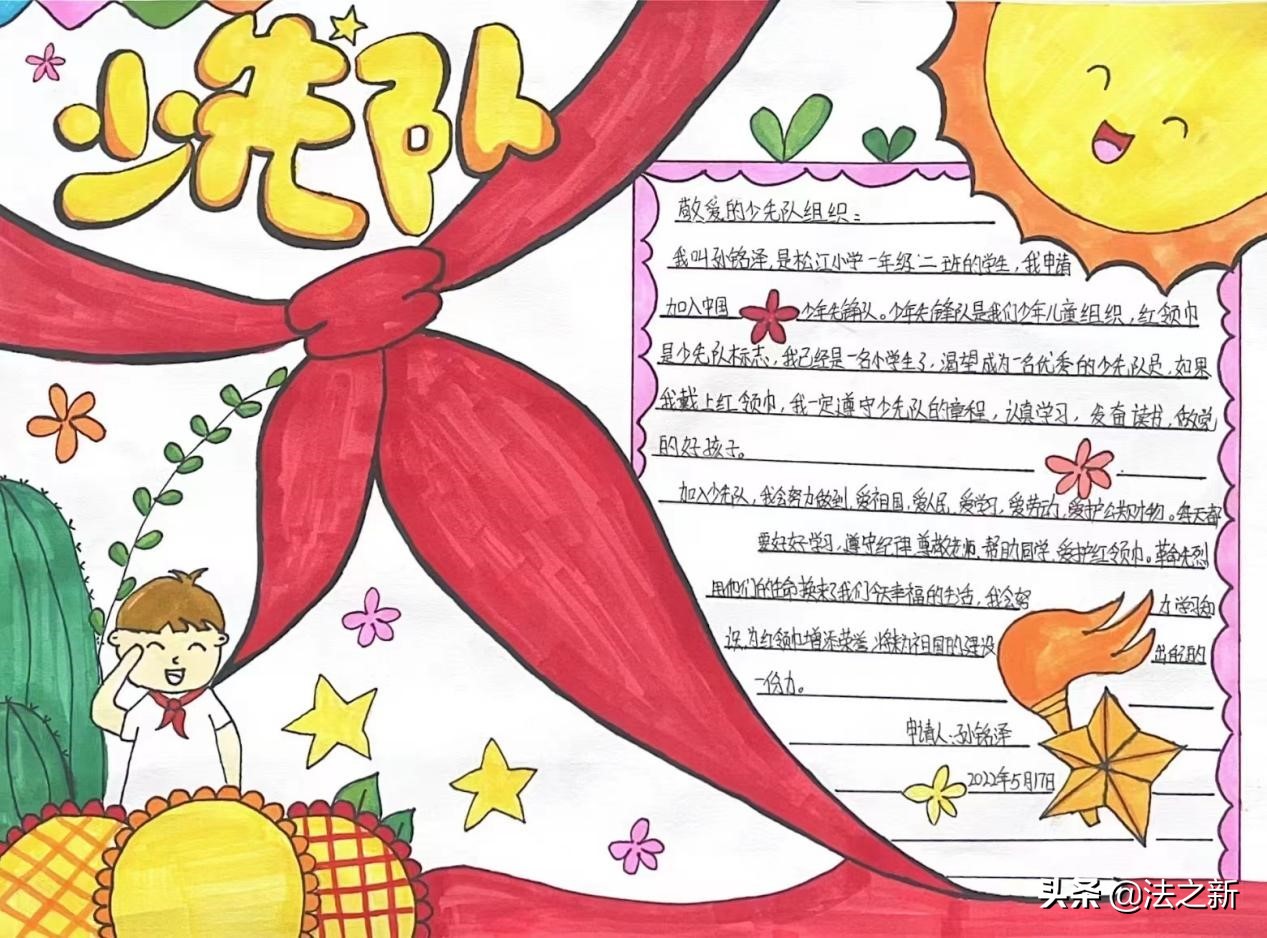 少先队
敬爱的少先队组织：
我叫孙铭泽，是松江小学一年级二班的学生，我申请
加入中国少年先锋队。少年先锋队是我们少年儿童组织，红领巾
是少先队标志，我已经是一名小学生了，渴望成为一名优秀的少先队员，如果
我戴上红领巾，我一定遵守少先队的章程，认真学习，发奋读书，做党
的好孩子。
加入少先队，我会努力做到，爱祖国，爱人民，爱学习，爱劳动，爱护公共财物。每天都
要好好学习，遵守纪律，尊敬老师，帮助同学，爱护红领巾。革命先烈
用他们的生命换来了我们今天幸福的生活，我会努力学习知
识，为红领巾增添荣誉，将来为祖国的建设出自己的
一份力。
申请人：孙铭泽
2022年5月17日
头条 @法之新